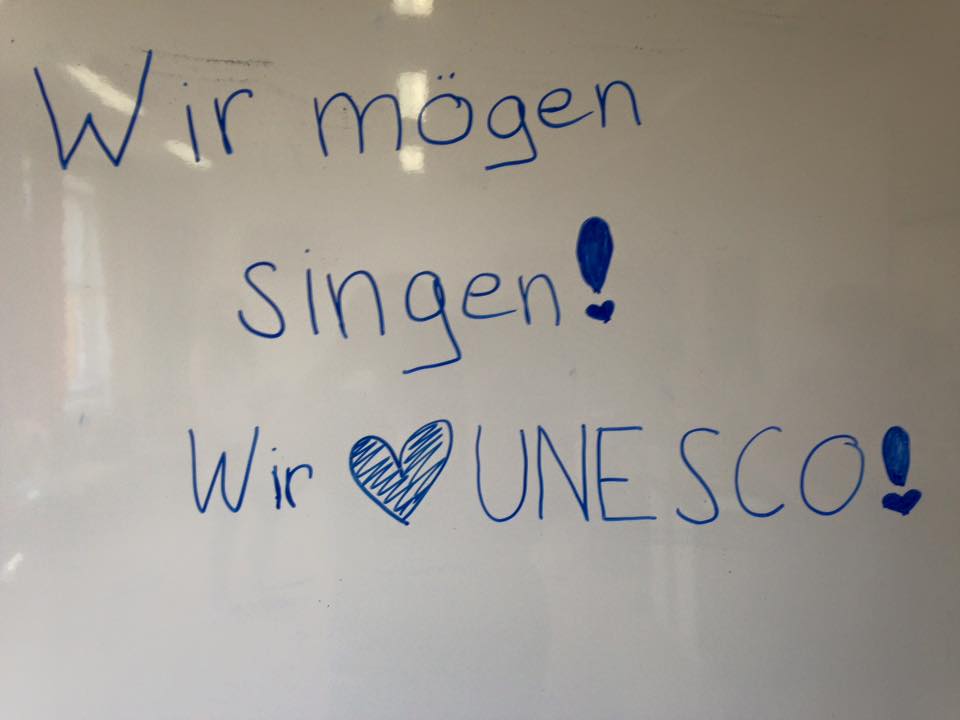 Wir mögen
singen!
Wir ♥ UNESCO!